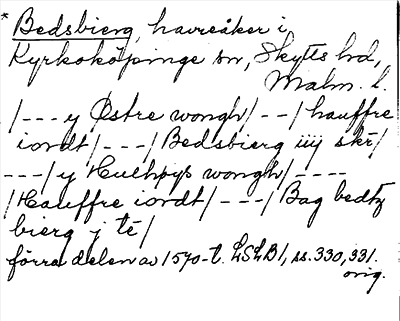 * Bedsbierg, havreåker i
Kyrkoköpinge sn, Skytts hd,
Malm. l.
/---y Østre wongh/--/hauffre
iordt/---/Bedsbierg iiij skr/
---/y Huchpys wongh/----
/Hauffre iordt/---/Bag bedtz
bierg j te/
förra delen av 1570-t. LSLB1, ss. 330, 331.
orig.